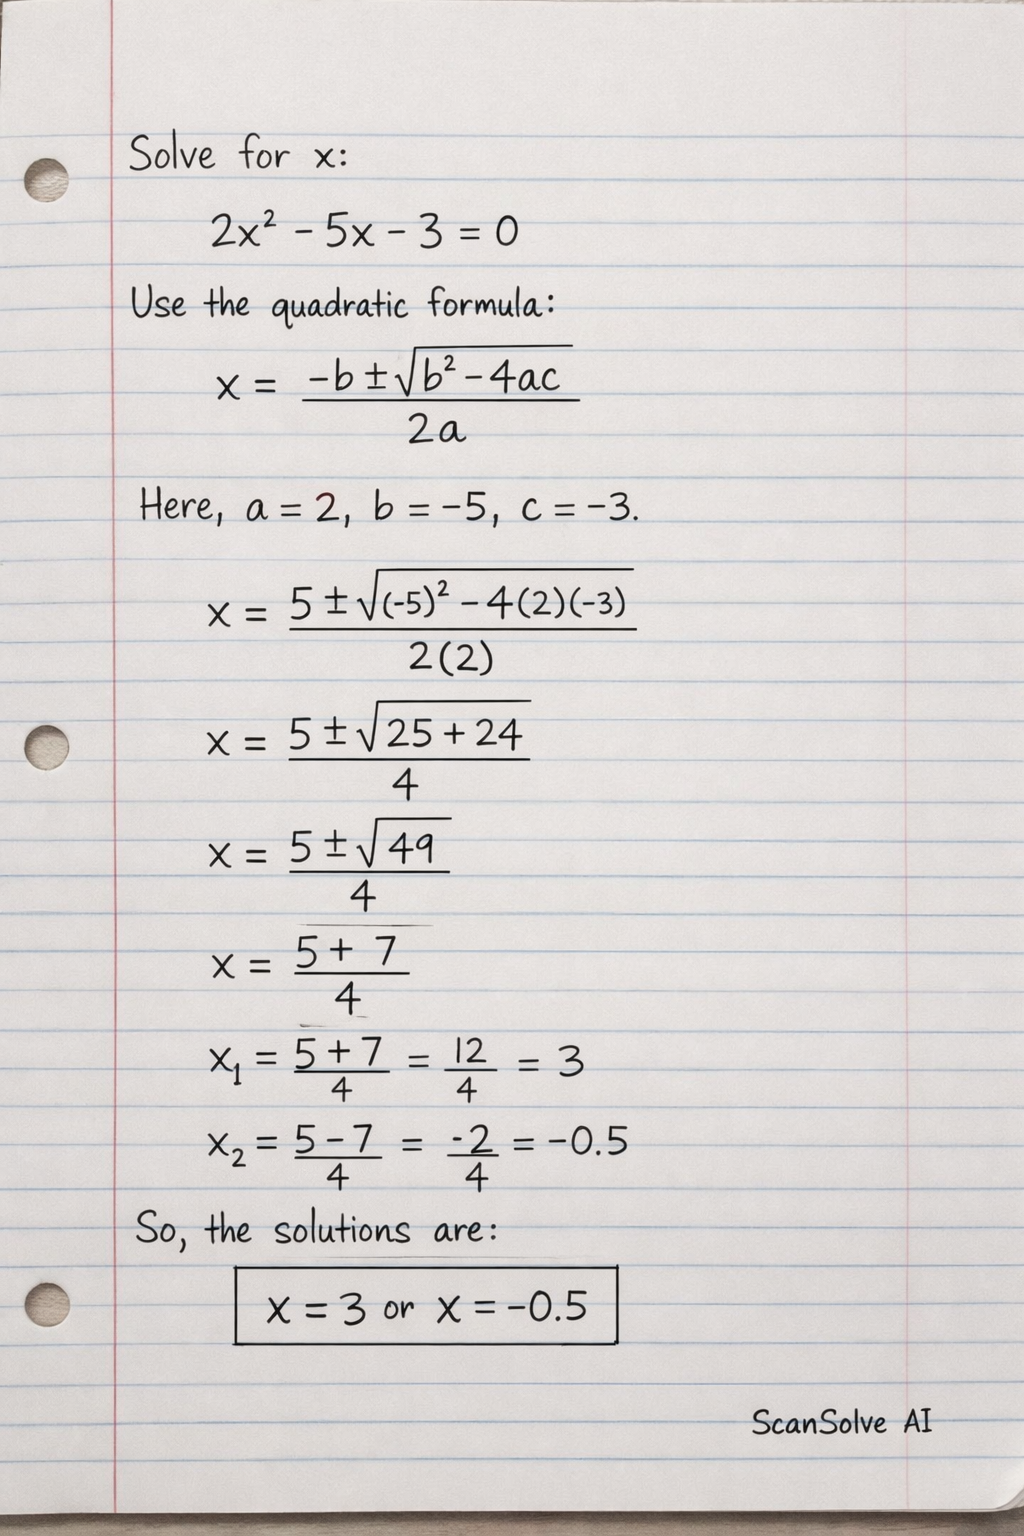 Solve for x:
2x² - 5x - 3 = 0
Use the quadratic formula:
x = (-b ± √(b² - 4ac)) / 2a
Here, a = 2, b = -5, c = -3.
x = (5 ± √((-5)² - 4(2)(-3))) / 2(2)
x = (5 ± √(25 + 24)) / 4
x = (5 ± √49) / 4
x = (5 + 7) / 4
x₁ = (5 + 7) / 4 = 12 / 4 = 3
x₂ = (5 - 7) / 4 = -2 / 4 = -0.5
So, the solutions are:
x = 3 or x = -0.5
ScanSolve AI